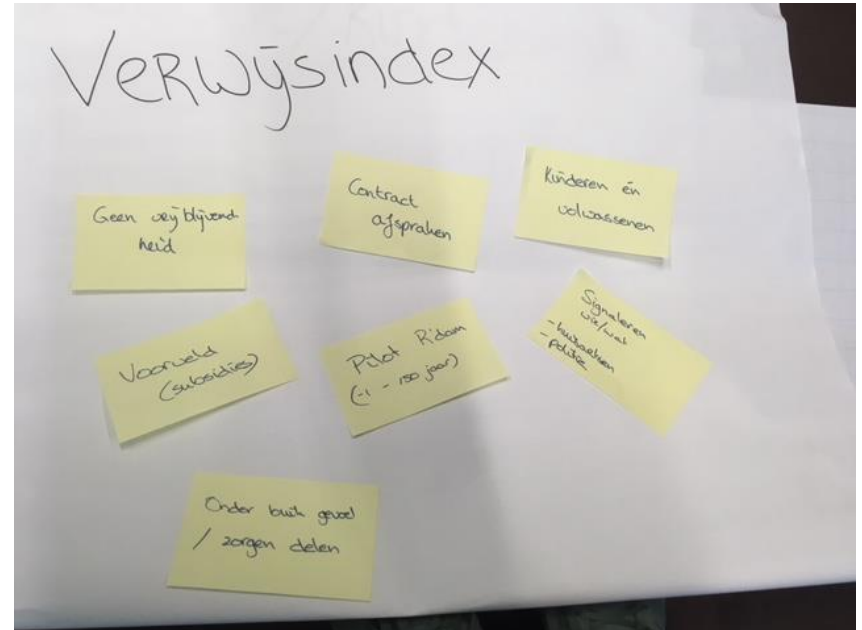 Verwijsindex
Geen vrijblijvend
heid
Contract
afspraken
Kinderen én
volwassenen
Voorveld
(subsidies)
Pilot R'dam
(-1 - 150 jaar)
Signaleren
wie/wat
- huisartsen
- politie
Onder buik gevoel
/ zorgen delen